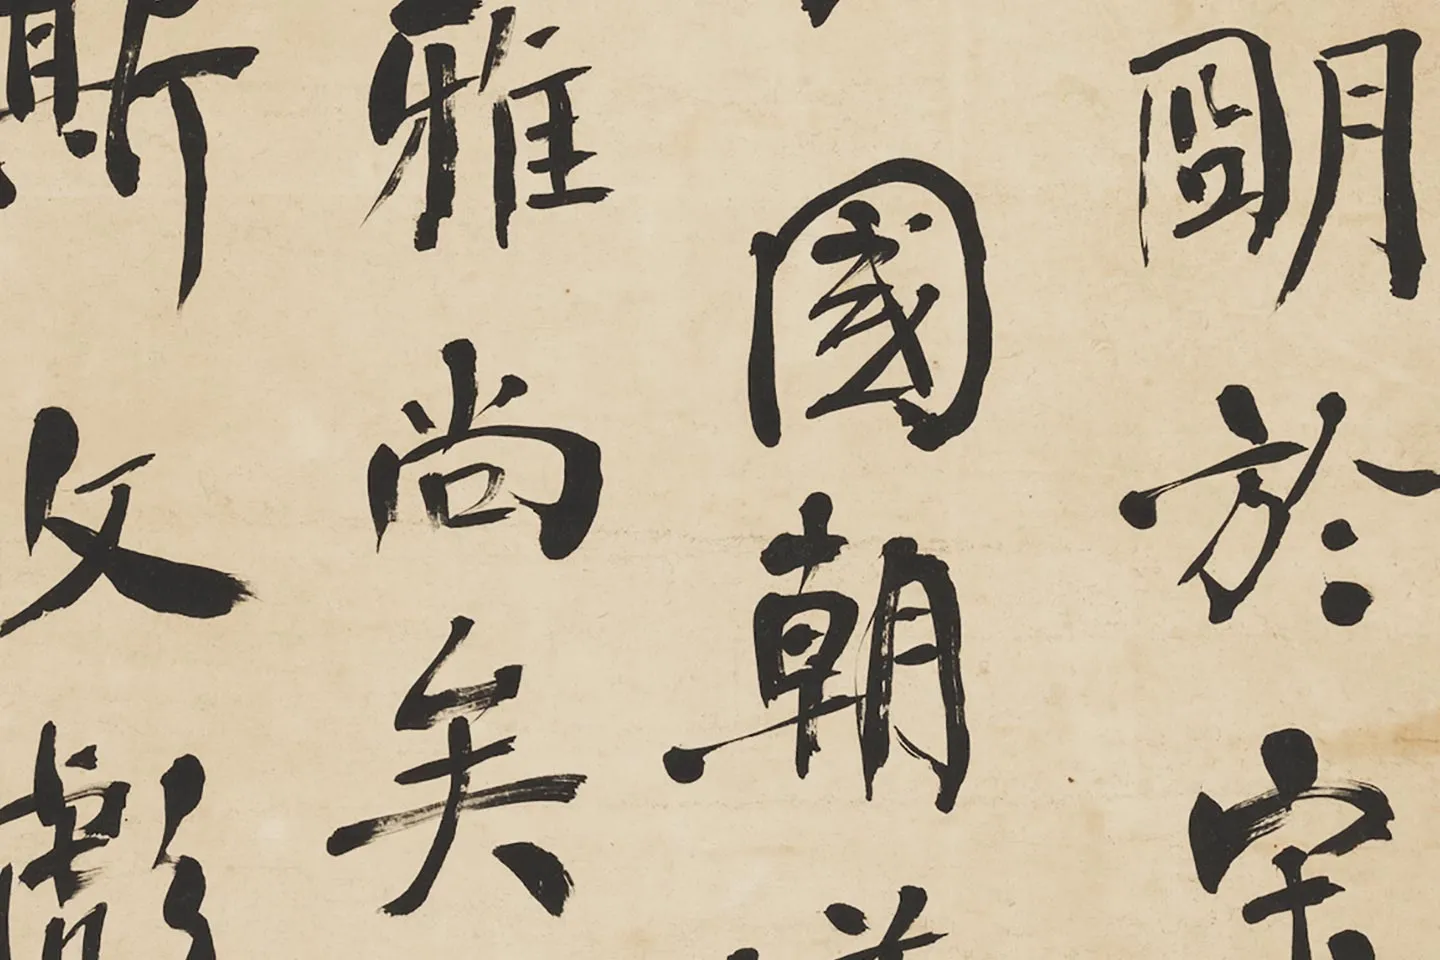 朙於宋
國朝
雅尚矣
斯文